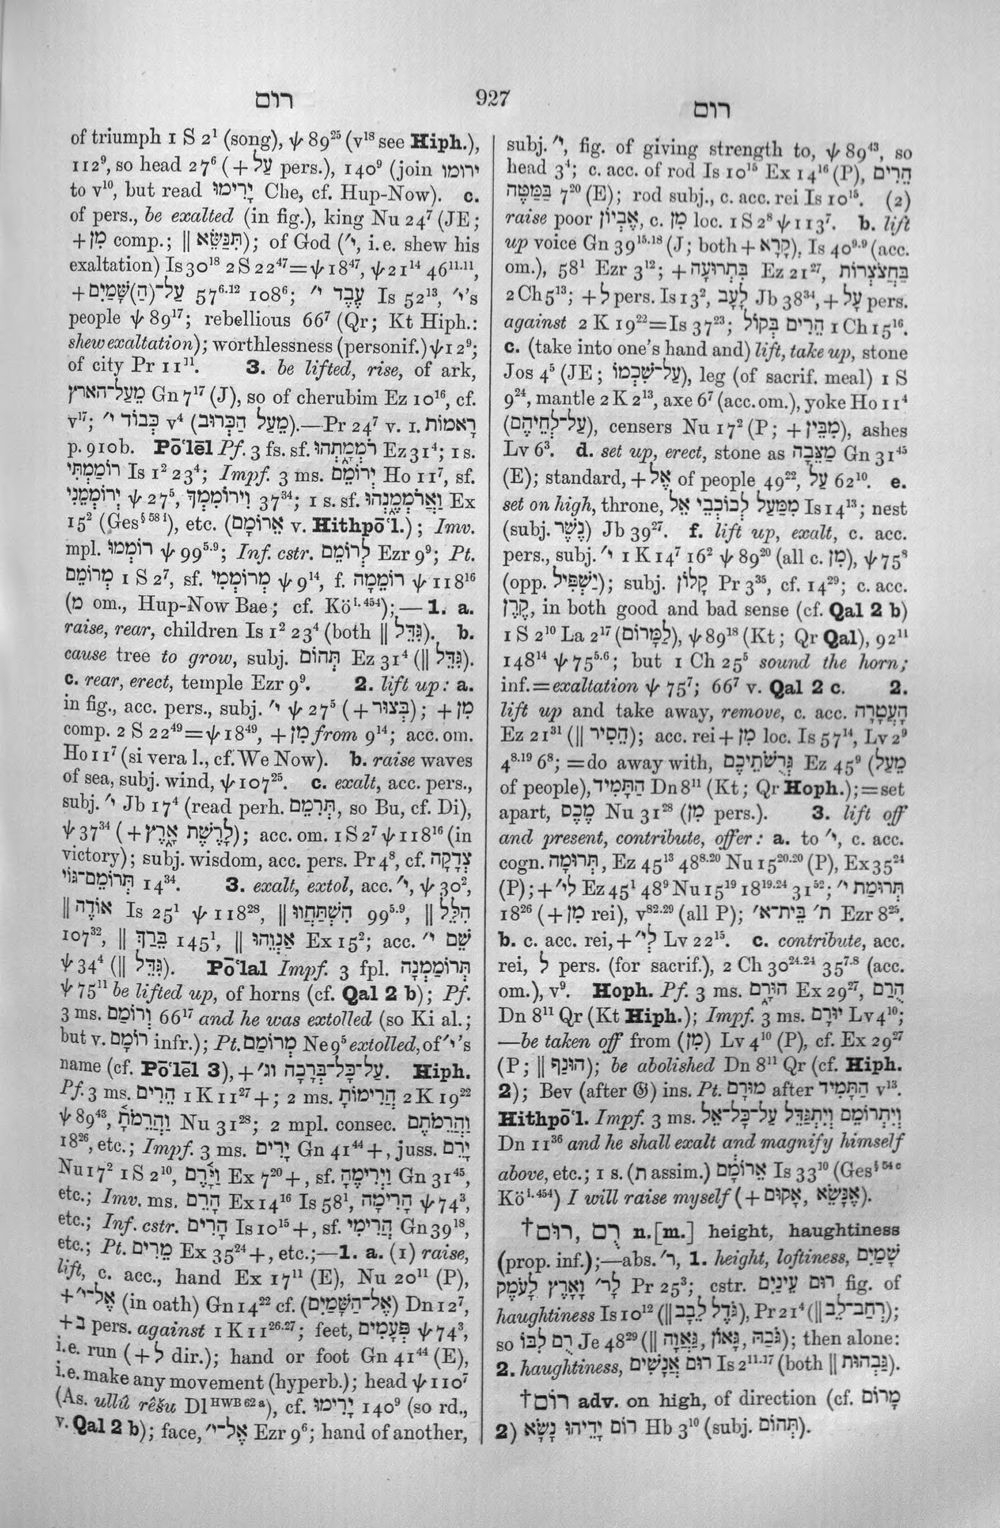 רום
927
רום
of triumph 1 S 2¹ (song), ψ 89²⁵ (v¹⁸ see Hiph.),
112⁹, so head 27⁶ (+ עַל pers.), 140⁹ (join ירומו
to v¹⁰, but read יָרִימוּ Che, cf. Hup-Now). c.
of pers., be exalted (in fig.), king Nu 24⁷ (JE;
+ מִן comp.; ‖ תִּנַּשֵּׂא); of God (י׳, i.e. shew his
exaltation) Is 30¹⁸ 2 S 22⁴⁷=ψ 18⁴⁷, ψ 21¹⁴ 46¹¹·¹¹,
+ עַל־(הַ)שָּׁמַיִם 57⁶·¹² 108⁶; עֶבֶד י׳ Is 52¹³, י׳'s
people ψ 89¹⁷; rebellious 66⁷ (Qr; Kt Hiph.:
shew exaltation); worthlessness (personif.) ψ 12⁹;
of city Pr 11¹¹. 3. be lifted, rise, of ark,
מֵעַל־הארץ Gn 7¹⁷ (J), so of cherubim Ez 10¹⁶, cf.
v¹⁷; כְּבוֹד י׳ v⁴ (מֵעַל הַכְּרוּב).—Pr 24⁷ v. 1. רָאמוֹת
p. 910b. Pō‘lēl Pf. 3 fs. sf. רֹמְמָתְהוּ Ez 31⁴; 1 s.
רוֹמַמְתִּי Is 1² 23⁴; Impf. 3 ms. יְרוֹמֵם Ho 11⁷, sf.
יְרוֹמְמֵנִי ψ 27⁵, וִירוֹמִמְךָ 37³⁴; 1 s. sf. וַאֲרֹמְמֶנְהוּ Ex
15² (Ges§ 58 i), etc. (אֵרוֹמָם v. Hithpō‘l.); Imv.
mpl. רוֹמְמוּ ψ 99⁵·⁹; Inf. cstr. לְרוֹמֵם Ezr 9⁹; Pt.
מְרוֹמֵם 1 S 2⁷, sf. מְרוֹמְמִי ψ 9¹⁴, f. רוֹמֵמָה ψ 118¹⁶
(מ om., Hup-Now Bae; cf. Kö i. 454);—1. a.
raise, rear, children Is 1² 23⁴ (both ‖ גִּדֵּל). b.
cause tree to grow, subj. תְּהוֹם Ez 31⁴ (‖ גִּדֵּל).
c. rear, erect, temple Ezr 9⁹. 2. lift up: a.
in fig., acc. pers., subj. י׳ ψ 27⁵ (+ בְּצוּר); + מִן
comp. 2 S 22⁴⁹=ψ 18⁴⁹, + מִן from 9¹⁴; acc. om.
Ho 11⁷ (si vera l., cf. We Now). b. raise waves
of sea, subj. wind, ψ 107²⁵. c. exalt, acc. pers.,
subj. י׳ Jb 17⁴ (read perh. תְּרֹמֵם, so Bu, cf. Di),
ψ 37³⁴ (+ לָרֶשֶׁת אָרֶץ); acc. om. 1 S 2⁷ ψ 118¹⁶ (in
victory); subj. wisdom, acc. pers. Pr 4⁸, cf. צְדָקָה
תְּרוֹמֵם־גּוֹי 14³⁴. 3. exalt, extol, acc. י׳, ψ 30²,
‖ אוֹדֶה Is 25¹ ψ 118²⁸, ‖ הִשְׁתַּחֲווּ 99⁵·⁹, ‖ הִלֵּל
107³², ‖ בֵּרַךְ 145¹, ‖ אַנְוֵהוּ Ex 15²; acc. שֵׁם י׳
ψ 34⁴ (‖ גִּדֵּל). Pō‘lal Impf. 3 fpl. תְּרוֹמַמְנָה
ψ 75¹¹ be lifted up, of horns (cf. Qal 2 b); Pf.
3 ms. וְרוֹמַם 66¹⁷ and he was extolled (so Ki al.;
but v. רוֹמָם infr.); Pt. מְרוֹמַם Ne 9⁵ extolled, of י׳'s
name (cf. Pō‘lēl 3), + עַל־כָּל־בְּרָכָה וג׳. Hiph.
Pf. 3 ms. הֵרִים 1 K 11²⁷+; 2 ms. הֲרִימוֹתָ 2 K 19²²
ψ 89⁴³, וַהֲרֵמֹתָ Nu 31²⁸; 2 mpl. consec. וַהֲרֵמֹתֶם
18²⁶, etc.; Impf. 3 ms. יָרִים Gn 41⁴⁴+, juss. יָרֵם
Nu 17² 1 S 2¹⁰, וַיָּרֶם Ex 7²⁰+, sf. וַיְרִימֶהָ Gn 31⁴⁵,
etc.; Imv. ms. הָרֵם Ex 14¹⁶ Is 58¹, הָרִימָה ψ 74³,
etc.; Inf. cstr. הָרִים Is 10¹⁵+, sf. הֲרִימִי Gn 39¹⁸,
etc.; Pt. מֵרִים Ex 35²⁴+, etc.;—1. a. (1) raise,
lift, c. acc., hand Ex 17¹¹ (E), Nu 20¹¹ (P),
+ אֶל־י׳ (in oath) Gn 14²² cf. (אֶל־הַשָּׁמַיִם) Dn 12⁷,
+ בְּ pers. against 1 K 11²⁶·²⁷; feet, פְּעָמִים ψ 74³,
i.e. run (+ לְ dir.); hand or foot Gn 41⁴⁴ (E),
i.e. make any movement (hyperb.); head ψ 110⁷
(As. ullû rêšu Dl HWB 62 a), cf. יָרִימוּ 140⁹ (so rd.,
v. Qal 2 b); face, אֶל־י׳ Ezr 9⁶; hand of another,
subj. י׳, fig. of giving strength to, ψ 89⁴³, so
head 3⁴; c. acc. of rod Is 10¹⁵ Ex 14¹⁶ (P), הֵרִים
בַּמַּטֶּה 7²⁰ (E); rod subj., c. acc. rei Is 10¹⁵. (2)
raise poor אֶבְיוֹן, c. מִן loc. 1 S 2⁸ ψ 113⁷. b. lift
up voice Gn 39¹⁵·¹⁸ (J; both + קָרָא), Is 40⁹·⁹ (acc.
om.), 58¹ Ezr 3¹²; + בִּתְרוּעָה Ez 21²⁷, בַּחֲצֹצְרוֹת
2 Ch 5¹³; + לְ pers. Is 13², לָעָב Jb 38³⁴, + עַל pers.
against 2 K 19²²=Is 37²³; הֵרִים בְּקוֹל 1 Ch 15¹⁶.
c. (take into one's hand and) lift, take up, stone
Jos 4⁵ (JE; עַל־שִׁכְמוֹ), leg (of sacrif. meal) 1 S
9²⁴, mantle 2 K 2¹³, axe 6⁷ (acc. om.), yoke Ho 11⁴
(עַל־לְחֵיהֶם), censers Nu 17² (P; + מִבֵּין), ashes
Lv 6³. d. set up, erect, stone as מַצֵּבָה Gn 31⁴⁵
(E); standard, + אֶל of people 49²², עַל 62¹⁰. e.
set on high, throne, מִמַּעַל לְכוֹכְבֵי אֵל Is 14¹³; nest
(subj. נֶשֶׁר) Jb 39²⁷. f. lift up, exalt, c. acc.
pers., subj. י׳ 1 K 14⁷ 16² ψ 89²⁰ (all c. מִן), ψ 75⁸
(opp. יַשְׁפִּיל); subj. קָלוֹן Pr 3³⁵, cf. 14²⁹; c. acc.
קֶרֶן, in both good and bad sense (cf. Qal 2 b)
1 S 2¹⁰ La 2¹⁷ (לַמָּרוֹם), ψ 89¹⁸ (Kt; Qr Qal), 92¹¹
148¹⁴ ψ 75⁵·⁶; but 1 Ch 25⁵ sound the horn;
inf.=exaltation ψ 75⁷; 66⁷ v. Qal 2 c. 2.
lift up and take away, remove, c. acc. הָעֲטָרָה
Ez 21³¹ (‖ הֵסִיר); acc. rei + מִן loc. Is 57¹⁴, Lv 2⁹
4⁸·¹⁹ 6⁸; =do away with, גְּרֻשֹׁתֵיכֶם Ez 45⁹ (מֵעַל
of people), הַתָּמִיד Dn 8¹¹ (Kt; Qr Hoph.);=set
apart, מֶכֶס Nu 31²⁸ (מִן pers.). 3. lift off
and present, contribute, offer: a. to י׳, c. acc.
cogn. תְּרוּמָה, Ez 45¹³ 48⁸·²⁰ Nu 15²⁰·²⁰ (P), Ex 35²⁴
(P); + לַי׳ Ez 45¹ 48⁹ Nu 15¹⁹ 18¹⁹·²⁴ 31⁵²; תְּרוּמַת י׳
18²⁶ (+ מִן rei), v⁸²·²⁹ (all P); ת׳ בֵּית־א׳ Ezr 8²⁵.
b. c. acc. rei, + לַי׳ Lv 22¹⁵. c. contribute, acc.
rei, לְ pers. (for sacrif.), 2 Ch 30²⁴·²⁴ 35⁷·⁸ (acc.
om.), v⁹. Hoph. Pf. 3 ms. הוּרַם Ex 29²⁷, הֻרַם
Dn 8¹¹ Qr (Kt Hiph.); Impf. 3 ms. יוּרַם Lv 4¹⁰;
—be taken off from (מִן) Lv 4¹⁰ (P), cf. Ex 29²⁷
(P; ‖ הוּנַף); be abolished Dn 8¹¹ Qr (cf. Hiph.
2); Bev (after 𝔊) ins. Pt. מוּרָם after הַתָּמִיד v¹³.
Hithpō‘l. Impf. 3 ms. וְיִתְרוֹמֵם וְיִתְגַּדֵּל עַל־כָּל־אֵל
Dn 11³⁶ and he shall exalt and magnify himself
above, etc.; 1 s. (ת assim.) אֵרוֹמָם Is 33¹⁰ (Ges§ 54 c
Kö i. 454) I will raise myself (+ אָקוּם, אֶנָּשֵׂא).
†רוּם, רֻם n.[m.] height, haughtiness
(prop. inf.);—abs. ר׳, 1. height, loftiness, שָׁמַיִם
לָר׳ וָאָרֶץ לָעֹמֶק Pr 25³; cstr. רוּם עֵינַיִם fig. of
haughtiness Is 10¹² (‖ גֹּדֶל לְבַב), Pr 21⁴ (‖ רְחַב־לֵב);
so רֻם לִבּוֹ Je 48²⁹ (‖ גֹּבַהּ, גָּאוֹן, גַּאֲוָה); then alone:
2. haughtiness, רוּם אֲנָשִׁים Is 2¹¹·¹⁷ (both ‖ גַּבְהוּת).
†רוֹם adv. on high, of direction (cf. מָרוֹם
2) רוֹם יָדֵיהוּ נָשָׂא Hb 3¹⁰ (subj. תְּהוֹם).